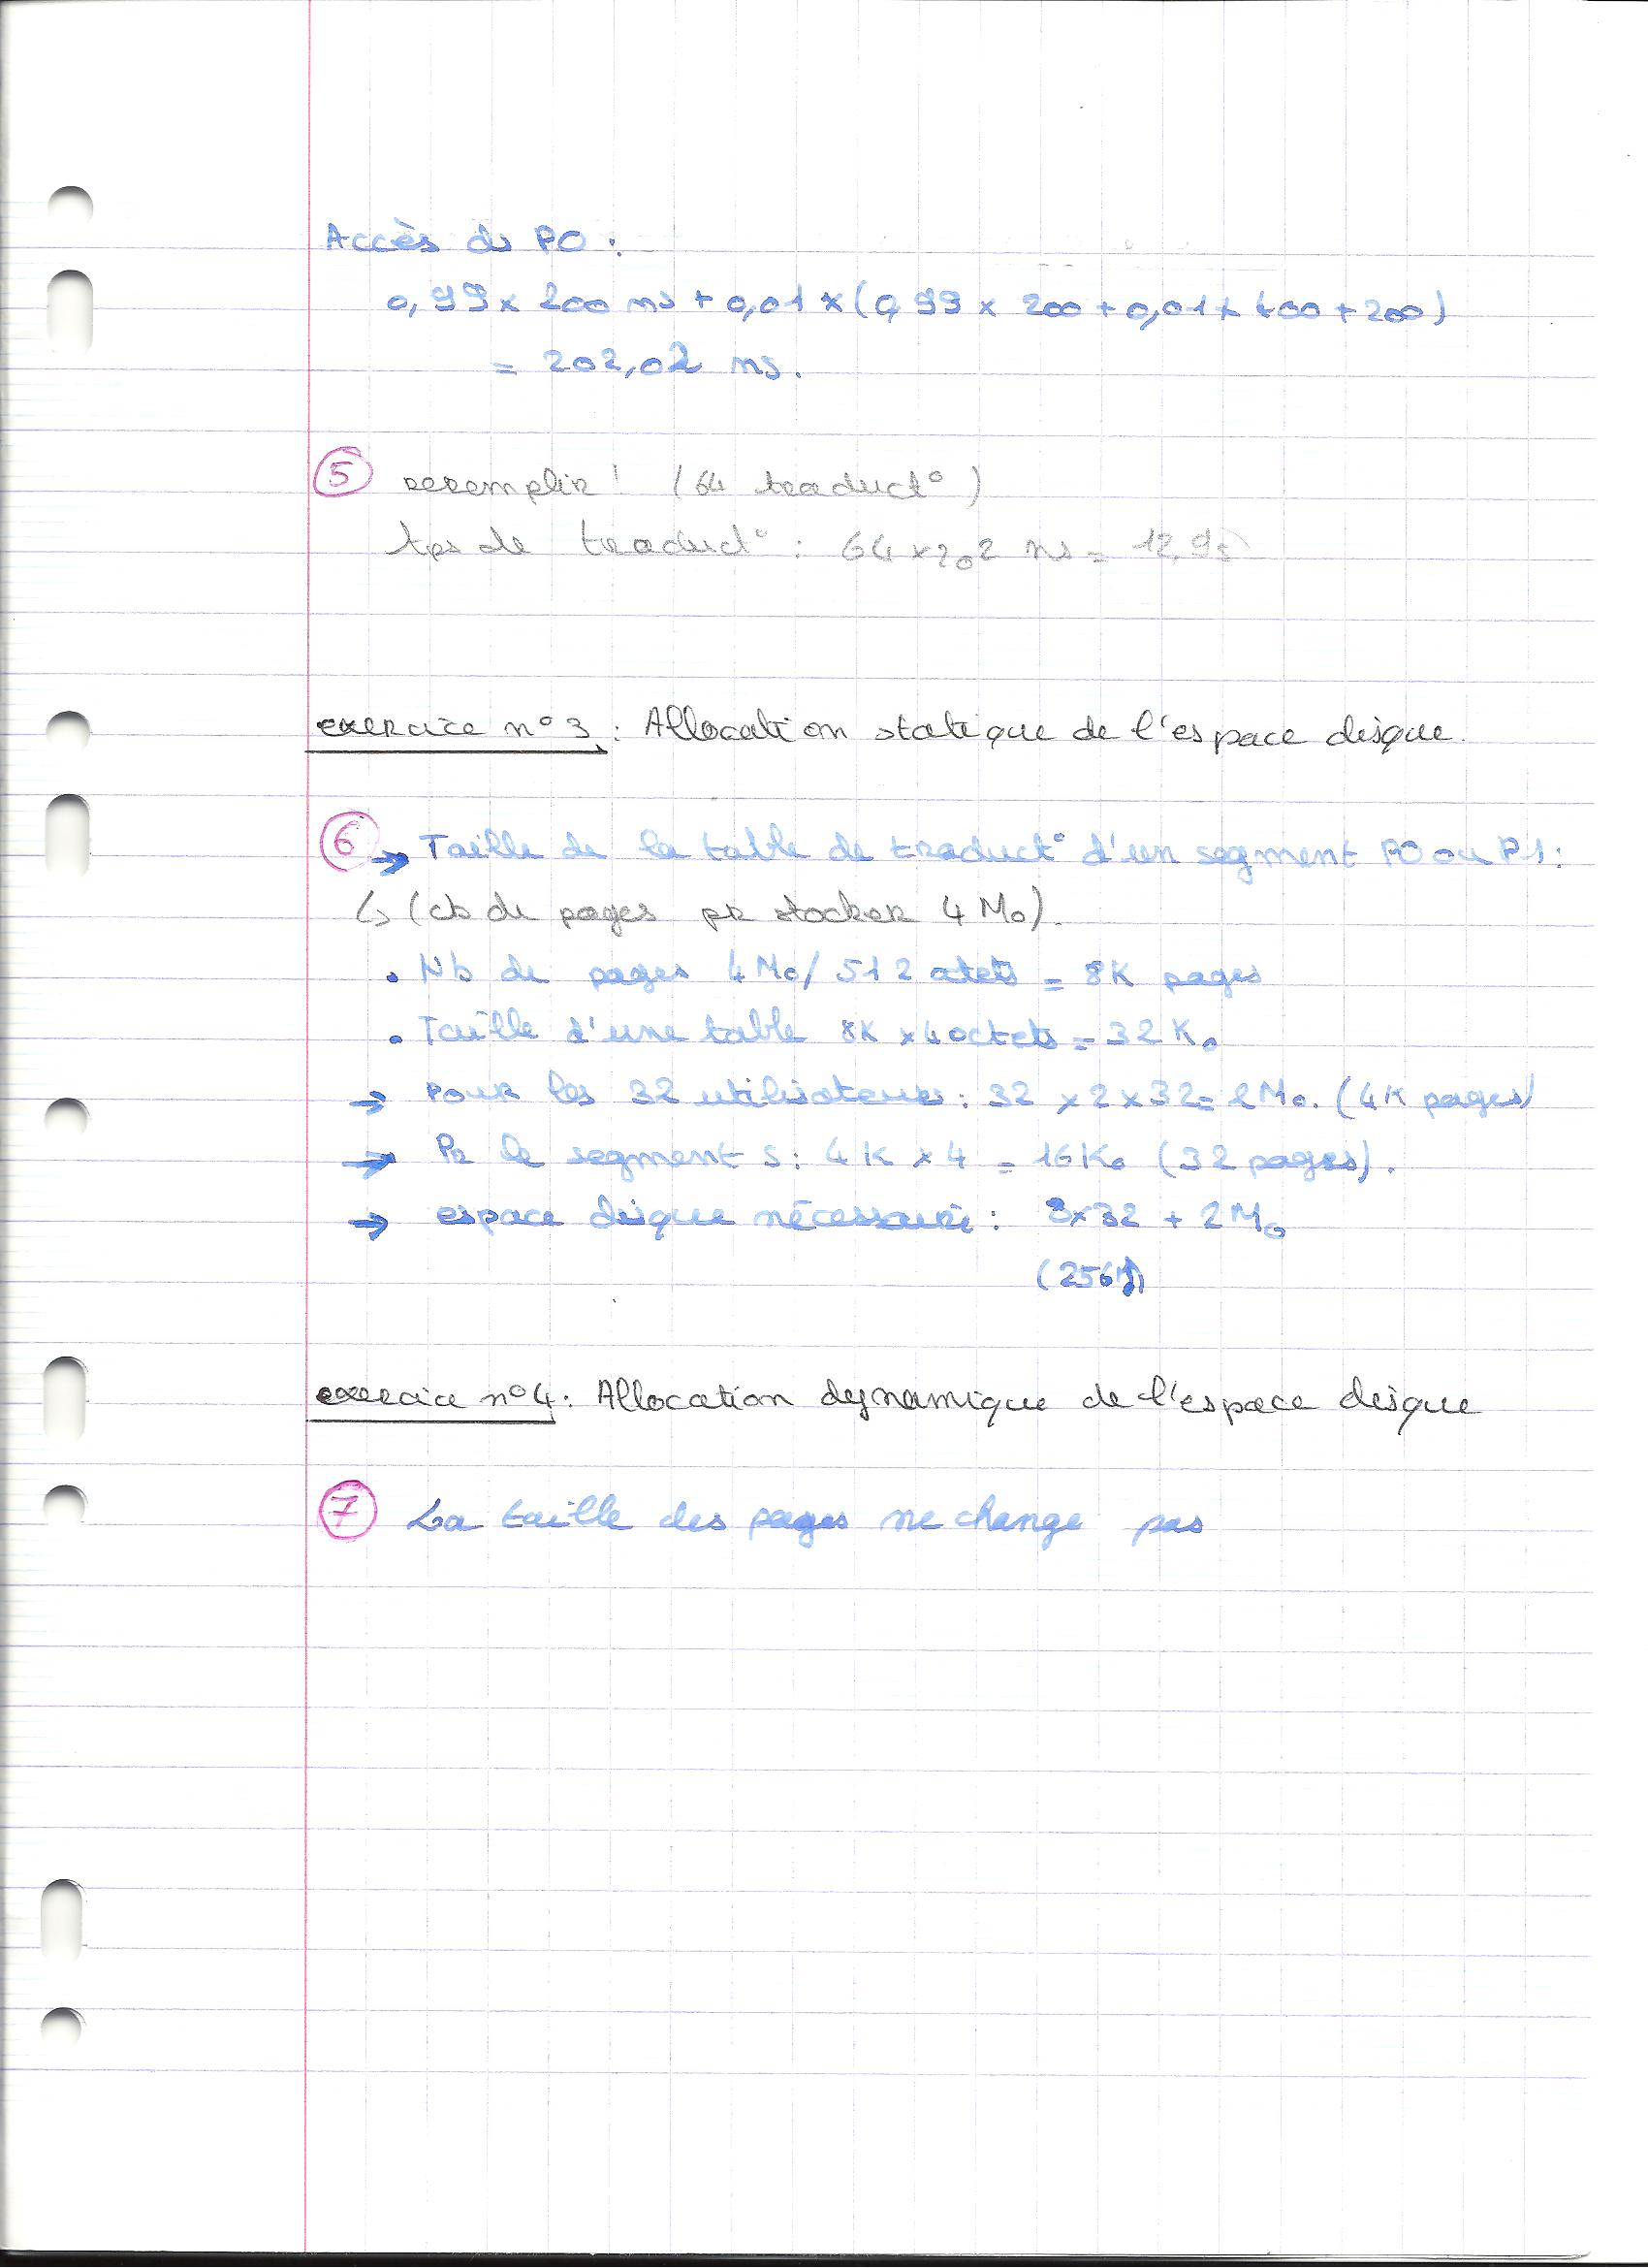 Accès ds P0 :
0,99 x 200 ns + 0,01 x (0,99 x 200 + 0,01 x 400 + 200)
= 202,02 ns.
5 reremplir ! (64 traduct°)
tps de traduct° : 64 x 202 ns = 12,9s
exercice n°3 : Allocation statique de l'espace disque.
6 → Taille de la table de traduct° d'un segment P0 ou P1 :
↳ (cb de pages pr stocker 4 Mo).
• Nb de pages 4 Mo / 512 octets = 8K pages
• Taille d'une table 8K x 4 octets = 32 Ko
→ Pour les 32 utilisateurs : 32 x 2 x 32 = 2 Mo. (4K pages)
→ Pr le segment S : 4K x 4 = 16 Ko (32 pages).
→ espace disque nécessaire : 8x32 + 2 Mo
(256
exercice n°4 : Allocation dynamique de l'espace disque
7 La taille des pages ne change pas